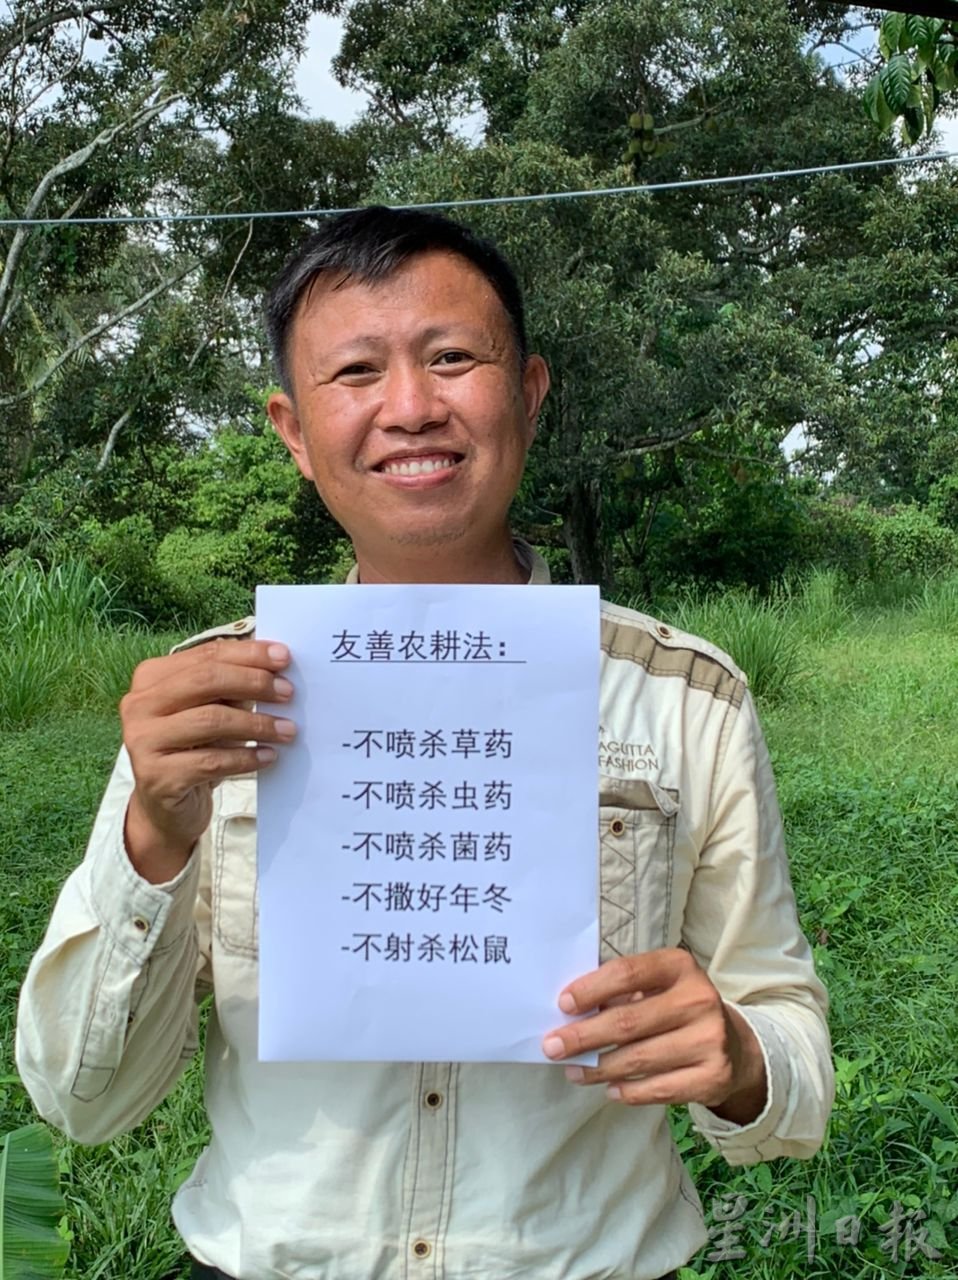 友善农耕法：
-不喷杀草药
AGUTTA
FASHION
-不喷杀虫药
-不喷杀菌药
-不撒好年冬
-不射杀松鼠
星洲日报